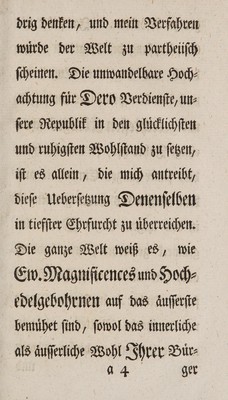 drig denken, und mein Verfahren
würde der Welt zu partheiisch
scheinen. Die unwandelbare Hoch-
achtung für Dero Verdienste, un-
sere Republik in den glücklichsten
und ruhigsten Wohlstand zu setzen,
ist es allein, die mich antreibt,
diese Uebersetzung Denenselben
in tiefster Ehrfurcht zu überreichen.
Die ganze Welt weiß es, wie
Ew. Magnificences und Hoch-
edelgebohrnen auf das äusserste
bemühet sind, sowol das innerliche
als äusserliche Wohl Ihrer Bür-
a 4 ger